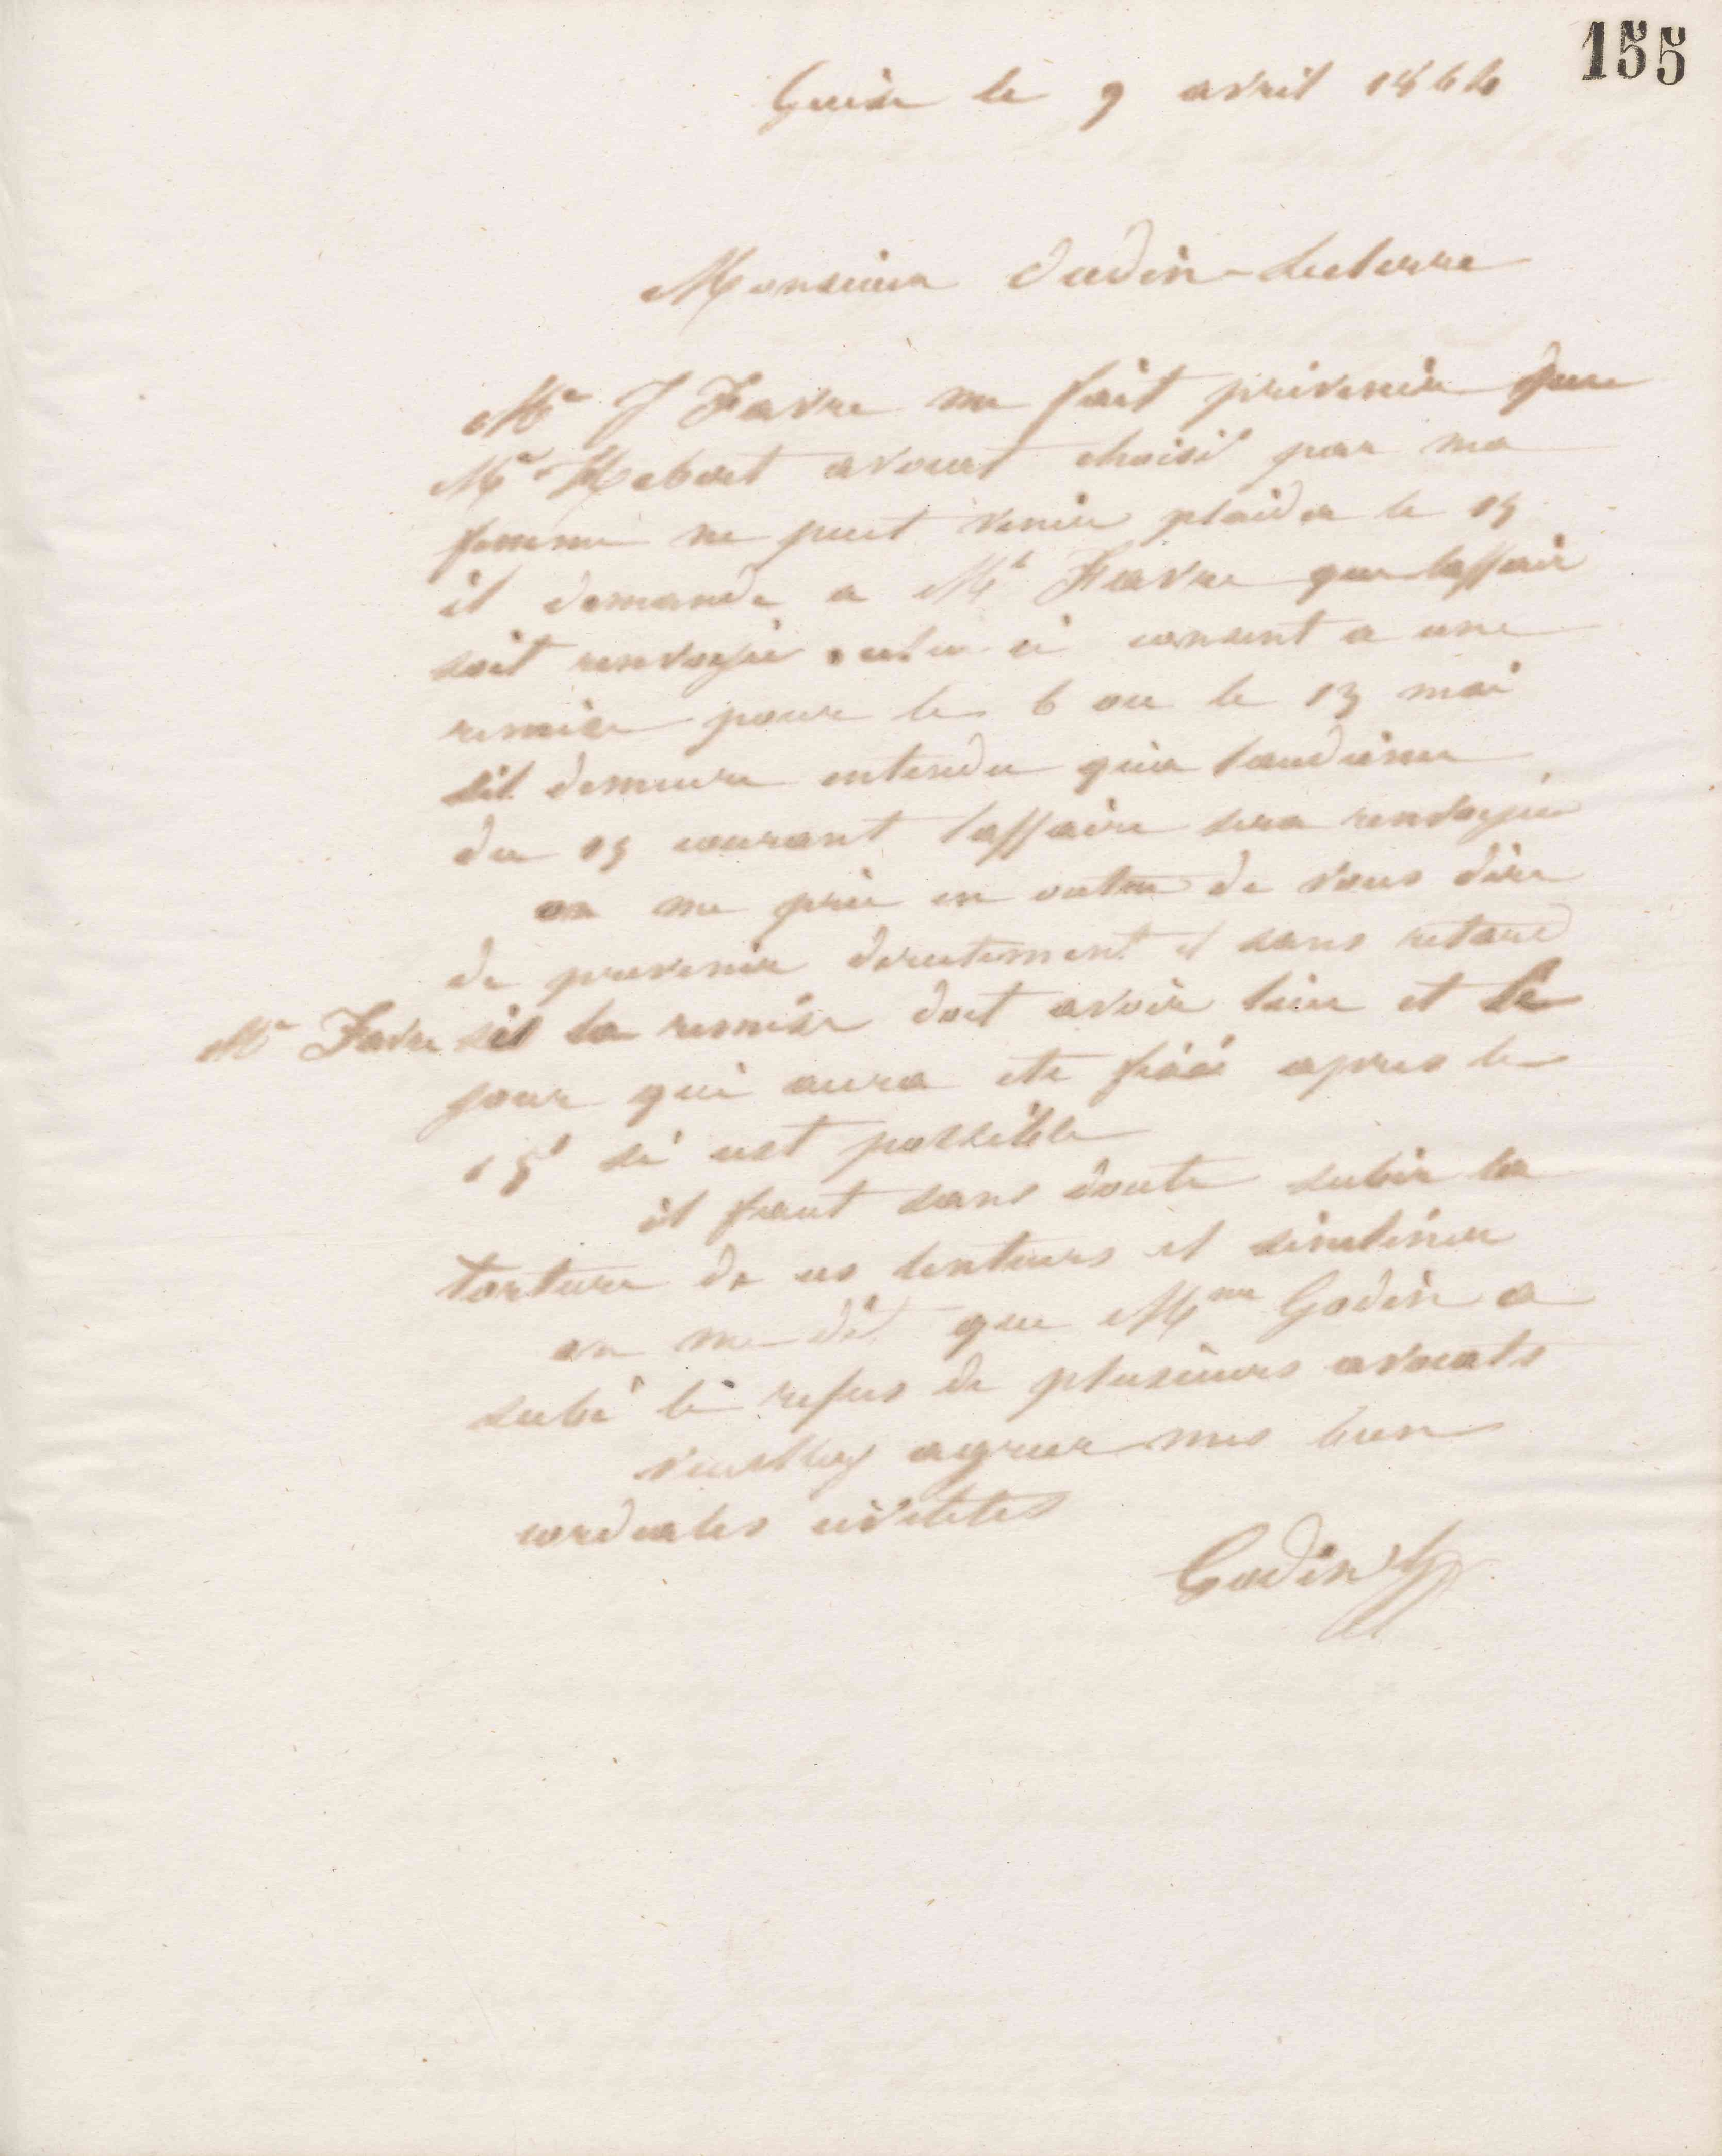 155
Guise le 9 avril 1864
Monsieur Oudin-Leclerre
Me J Favre me fait prévenir que
Me Hebert avocat choisi par ma
femme ne peut venir plaider le 15
il demande a Me Favre que laffaire
soit renvoyée celui ci consent a une
remise pour le 6 ou le 13 mai
sil demeure entendu qu'a laudience
du 15 courant laffaire sera renvoyée
on me prie en outre de vous dire
de prevenir directement et sans retard
Me Favre si la remise doit avoir lieu et le
jour qui aura ete fixé apres le
15 si cest possible
il faut sans doute subir la
torture de ces lenteurs et sincliner
on me dit que Mme Godin a
subi le refus de plusieurs avocats
veuillez agreer mes bien
cordiales civilites
Godin